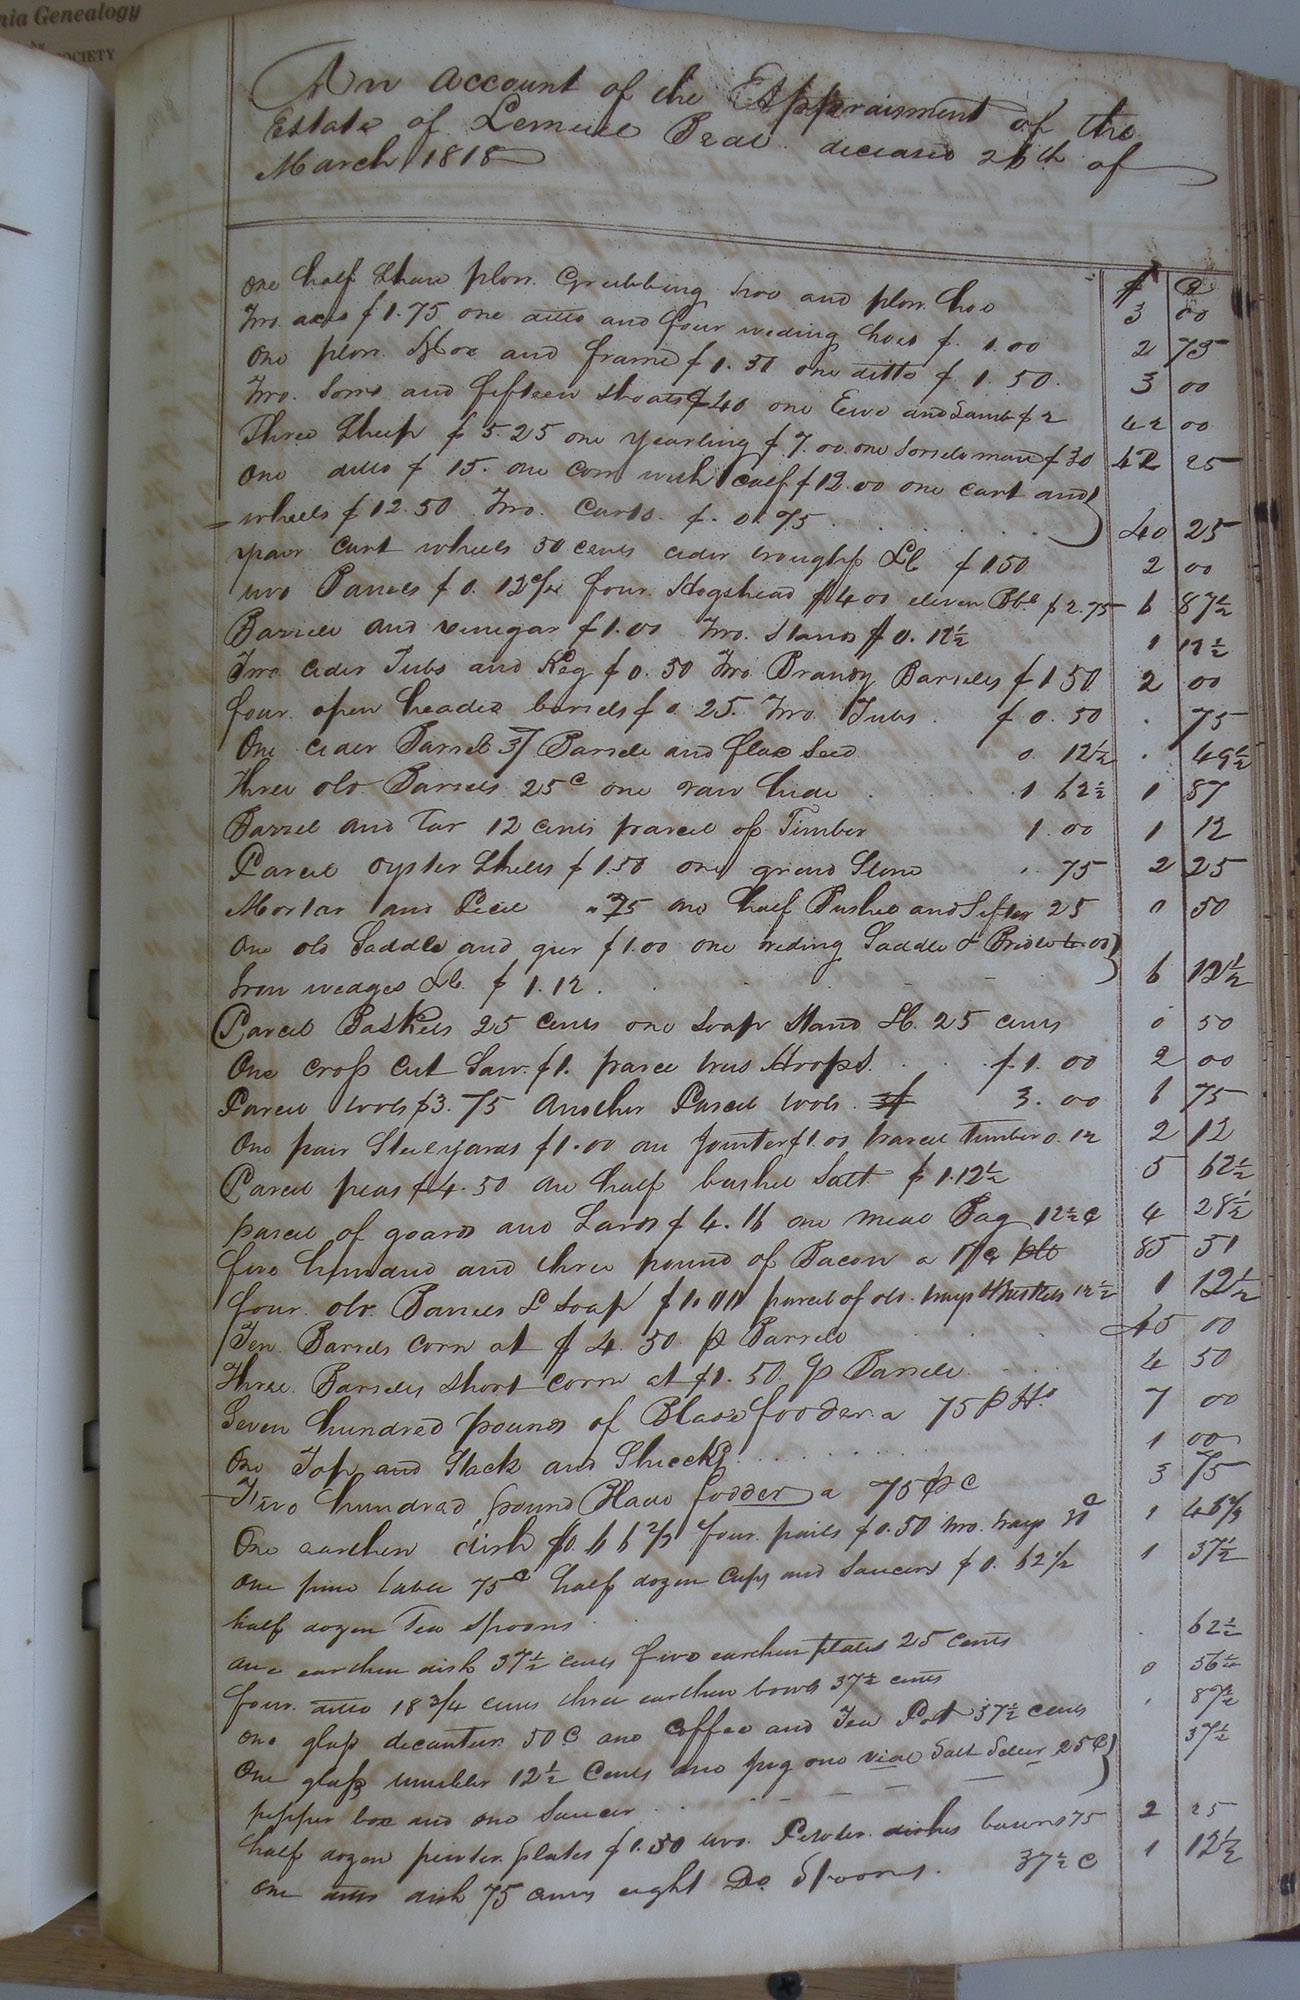 nia Genealogy
SOCIETY
An account of the Appraisment of the
Estate of Lemuel deceased 26th of
March 1818
$ C
One half Share plow Grubbing hoe and plow hoe 3 00
Two axes $1.75 one ditto and four weding hoes $ 1.00 2 75
One plow Hoe and frame $1.50 one ditto $ 1.50. 3 00
Two Sows and fifteen Shoats $40 one Ewe and Lamb $2 42 00
Three Sheep $5.25 one yearling $7.00 one Sorrele mare $30 42 25
One ditto $15. one Cow with calf $12.00 one cart and
wheels $12.50 Two Carts $. 0.75 40 25
pair Cart wheels 50 cents cider trough &C $1.50 2 00
two Barrels $0.12 1/2 four Hogshead $4.00 eleven Bbs $2.75 6 87½
Barrele and vinegar $1.00 Two Stands $0.12½ 1 12½
Two cider Tubs and Keg $0.50 Two Brandy Barreles $1 50 2 00
four open headed barrels $0.25. Two Tubs. $0.50 . 75
One cider Barrele 37 Barrele and flax Seed 0 12½ . 49½
Three old Barrels 25c one raw hide 1 62½ 1 87
Barrel and Tar 12 cents parcel of Timber 1.00 1 12
Parcel oyster Shells $1.50 one grind Stone . 75 2 25
Mortar and .25 one half Bushel and Sifter 25 0 50
One old Saddle and gier $1.00 one rieding Saddle & Bridle
Iron wedges &C. $1.12. 6 12½
Parcel Baskets 25 Cents one Soap Stand &C. 25 cents 0 50
One Cross Cut Saw $1. parcel trus Hoops. $1.00 2 00
Parcel tools $3.75 Another Parcel tools 3.00 6 75
One pair Steelyards $1.00 one Jointer $1.00 parcel timber 0.12 2 12
Parcel peas $4.50 one half bushel Salt $1.12½ 5 62½
parcel of goards and Lard $4.16 one meal Bag 12½ c 4 28½
five hundred and three pound of Bacon a 17 c 85 51
four old Barrels & Soap $1.00 parcel of old trays 12½ 1 12½
Ten Barrels corn at $4.50 p Barrele 45 00
Three Barreles Short corn at $1.50 p Barrele 4 50
Seven hundred pounds of Blade fodder a 75 p 7 00
One Top and Stack and Shucks 1 00
Five hundred pound Blade fodder a 75 p C 3 75
One earthen dish $0.66 2/3 four pails $0.50 two trays 30c 1 46 2/3
One pine table 75c half dozen Cups and Saucers $0.62 1/2 1 37½
half dozen Tea Spoons . 62½
one earthen dish 37½ cents five earthen plates 25 cents
four ditto 18 3/4 cents three earthen bowls 37½ cents 0 56¼
one glass decanter 50C one Coffee and Tea Pot 37½ cents . 87½
One glass tumbler 12½ Cents one jug one vial Salt Seller 25C 37½
pepper box and one Saucer
half dozen pewter plates $1.50 two Pewter dishes 75 2 25
one ditto dish 75 cents eight Do. Spoons. 37½ C 1 12½